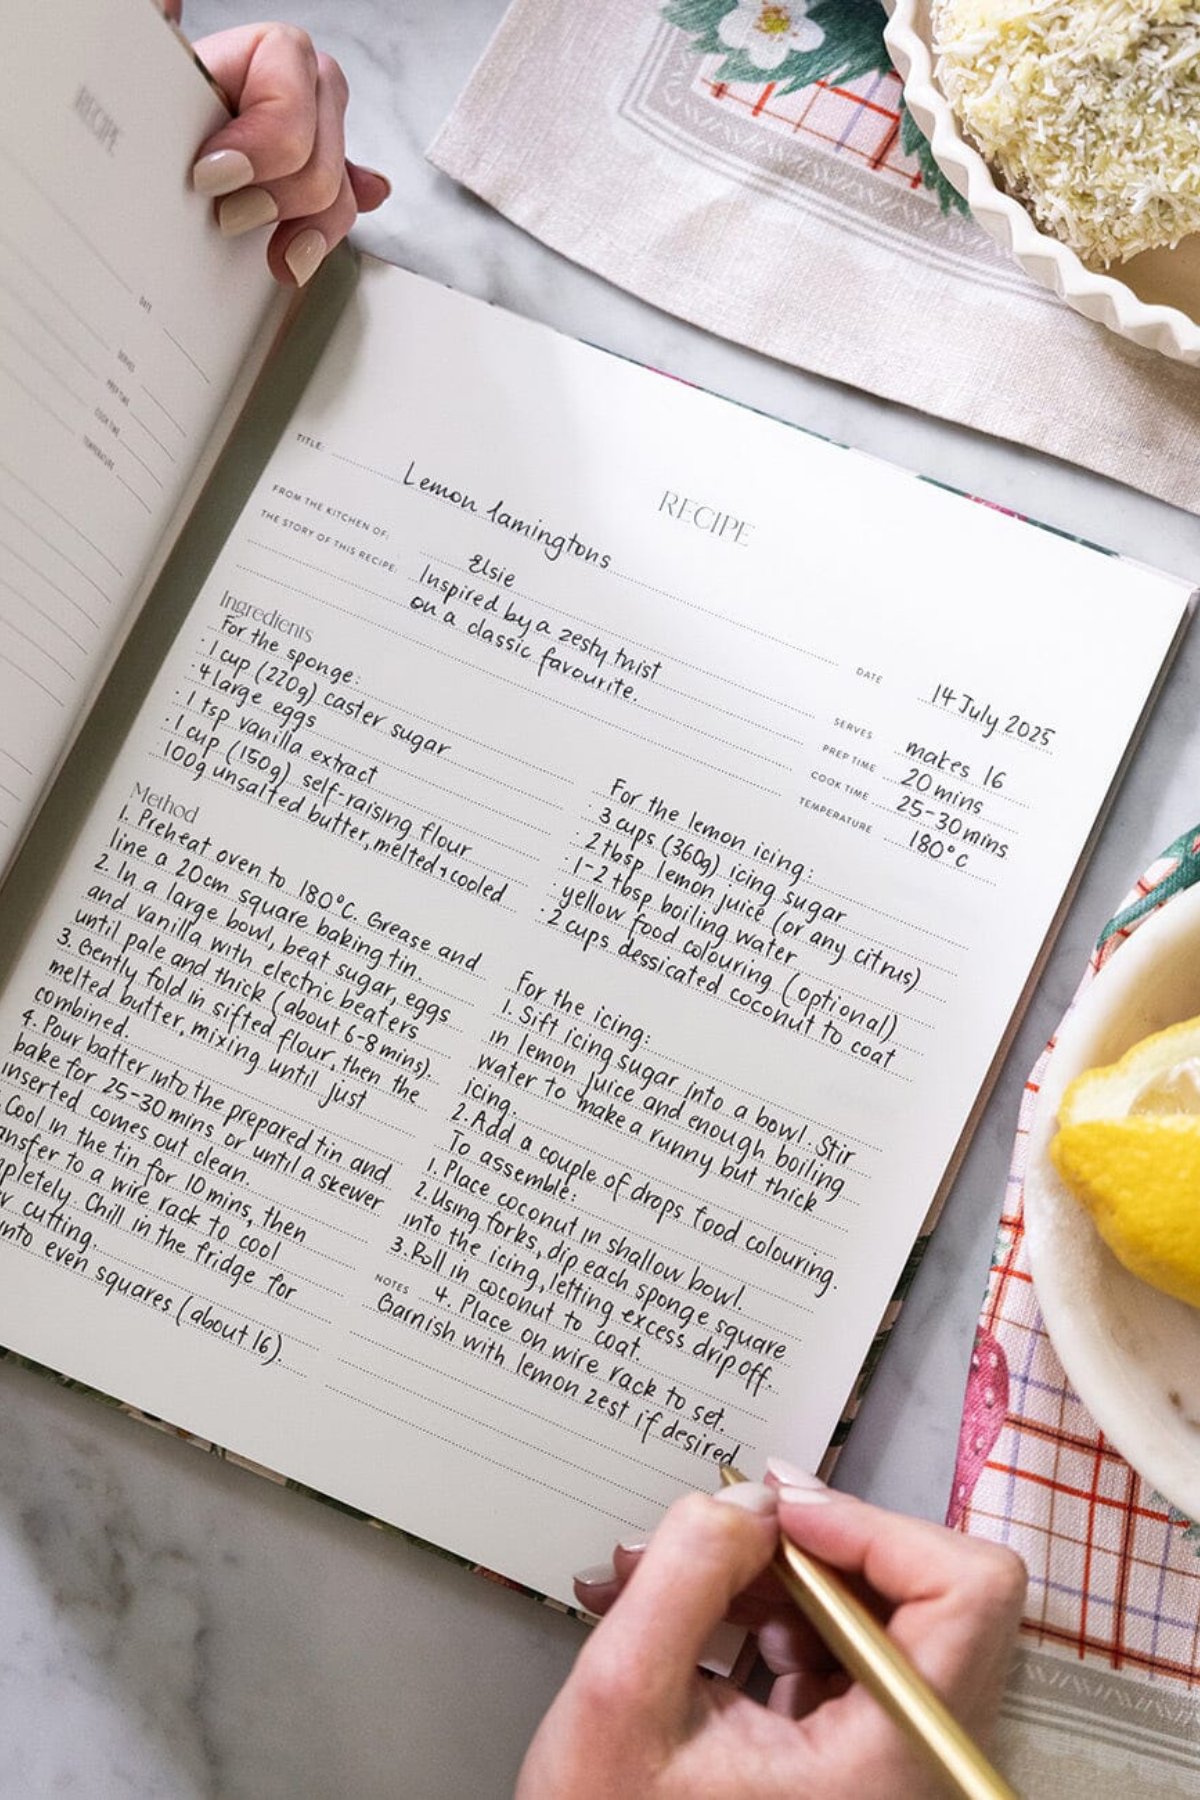 RECIPE
DATE
SERVES
PREP TIME
COOK TIME
TEMPERATURE
RECIPE
TITLE: Lemon lamingtons
FROM THE KITCHEN OF: Elsie
THE STORY OF THIS RECIPE: Inspired by a zesty twist
on a classic favourite.
DATE 14 July 2025
SERVES makes 16
PREP TIME 20 mins
COOK TIME 25-30 mins
TEMPERATURE 180°C
Ingredients
For the sponge:
· 1 cup (220g) caster sugar
· 4 large eggs
· 1 tsp vanilla extract
· 1 cup (150g) self-raising flour
100g unsalted butter, melted & cooled
For the lemon icing:
· 3 cups (360g) icing sugar
· 2 tbsp lemon juice (or any citrus)
· 1-2 tbsp boiling water
· yellow food colouring (optional)
· 2 cups dessicated coconut to coat
Method
1. Preheat oven to 180°C. Grease and
line a 20cm square baking tin.
2. In a large bowl, beat sugar, eggs
and vanilla with electric beaters
until pale and thick (about 6-8 mins).
3. Gently fold in sifted flour, then the
melted butter, mixing until just
combined.
4. Pour batter into the prepared tin and
bake for 25-30 mins or until a skewer
inserted comes out clean.
Cool in the tin for 10 mins, then
to a wire rack to cool
Chill in the fridge for
cutting.
into even squares (about 16).
For the icing:
1. Sift icing sugar into a bowl. Stir
in lemon juice and enough boiling
water to make a runny but thick
icing.
2. Add a couple of drops food colouring.
To assemble:
1. Place coconut in shallow bowl.
2. Using forks, dip each sponge square
into the icing, letting excess drip off.
3. Roll in coconut to coat.
NOTES 4. Place on wire rack to set.
Garnish with lemon zest if desired